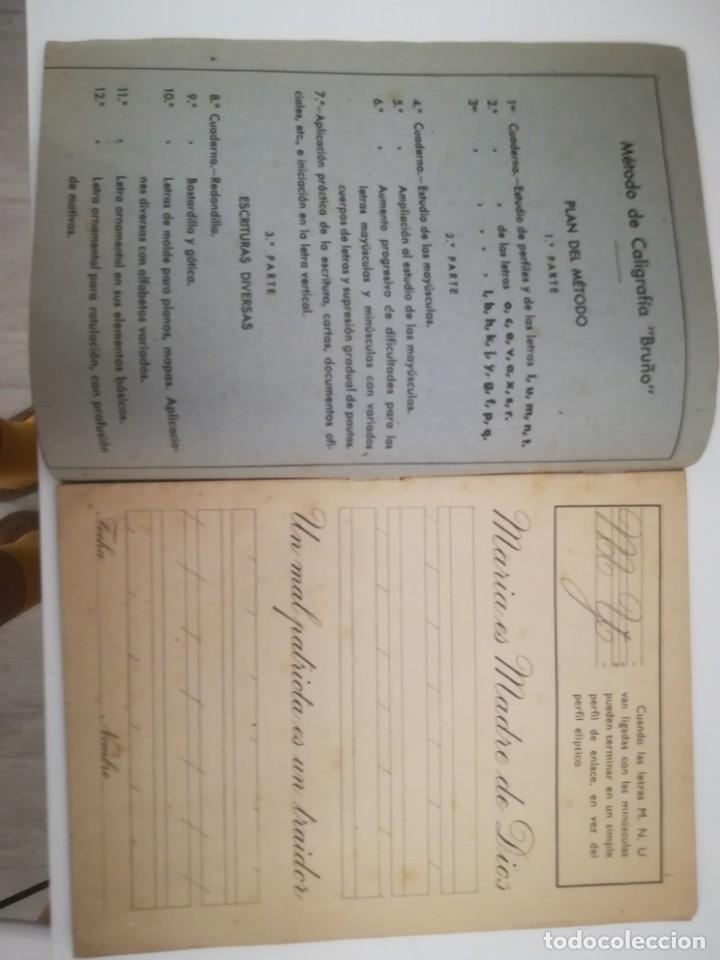 Método de Caligrafía "Bruño"
PLAN DEL MÉTODO
1.ª PARTE
1er Cuaderno.—Estudio de perfiles y de las letras i, u, m, n, t.
2.º " " de las letras o, c, e, v, a, x, s, r.
3er " " " l, b, h, k, j, y, g, f, p, q.
2.ª PARTE
4.º Cuaderno.—Estudio de las mayúsculas.
5.º " Ampliación al estudio de las mayúsculas.
6.º " Aumento progresivo de dificultades para las
letras mayúsculas y minúsculas con variados
cuerpos de letras y supresión gradual de pautas.
7.º—Aplicación práctica de la escritura, cartas, documentos ofi-
ciales, etc., e iniciación en la letra vertical.
3.ª PARTE
ESCRITURAS DIVERSAS
8.º Cuaderno.—Redondilla.
9.º " Bastardilla y gótica.
10.º " Letras de molde para planos, mapas. Aplicacio-
nes diversas con alfabetos variados.
11.º " Letra ornamental en sus elementos básicos.
12.º " Letra ornamental para rotulación, con profusión
de motivos.
Cuando las letras M, N, U
van ligadas con las minúsculas
pueden terminar en un simple
perfil de enlace, en vez del
perfil elíptico.
María es Madre de Dios
Un mal patriota es un traidor
Fecha Nombre
todocoleccion